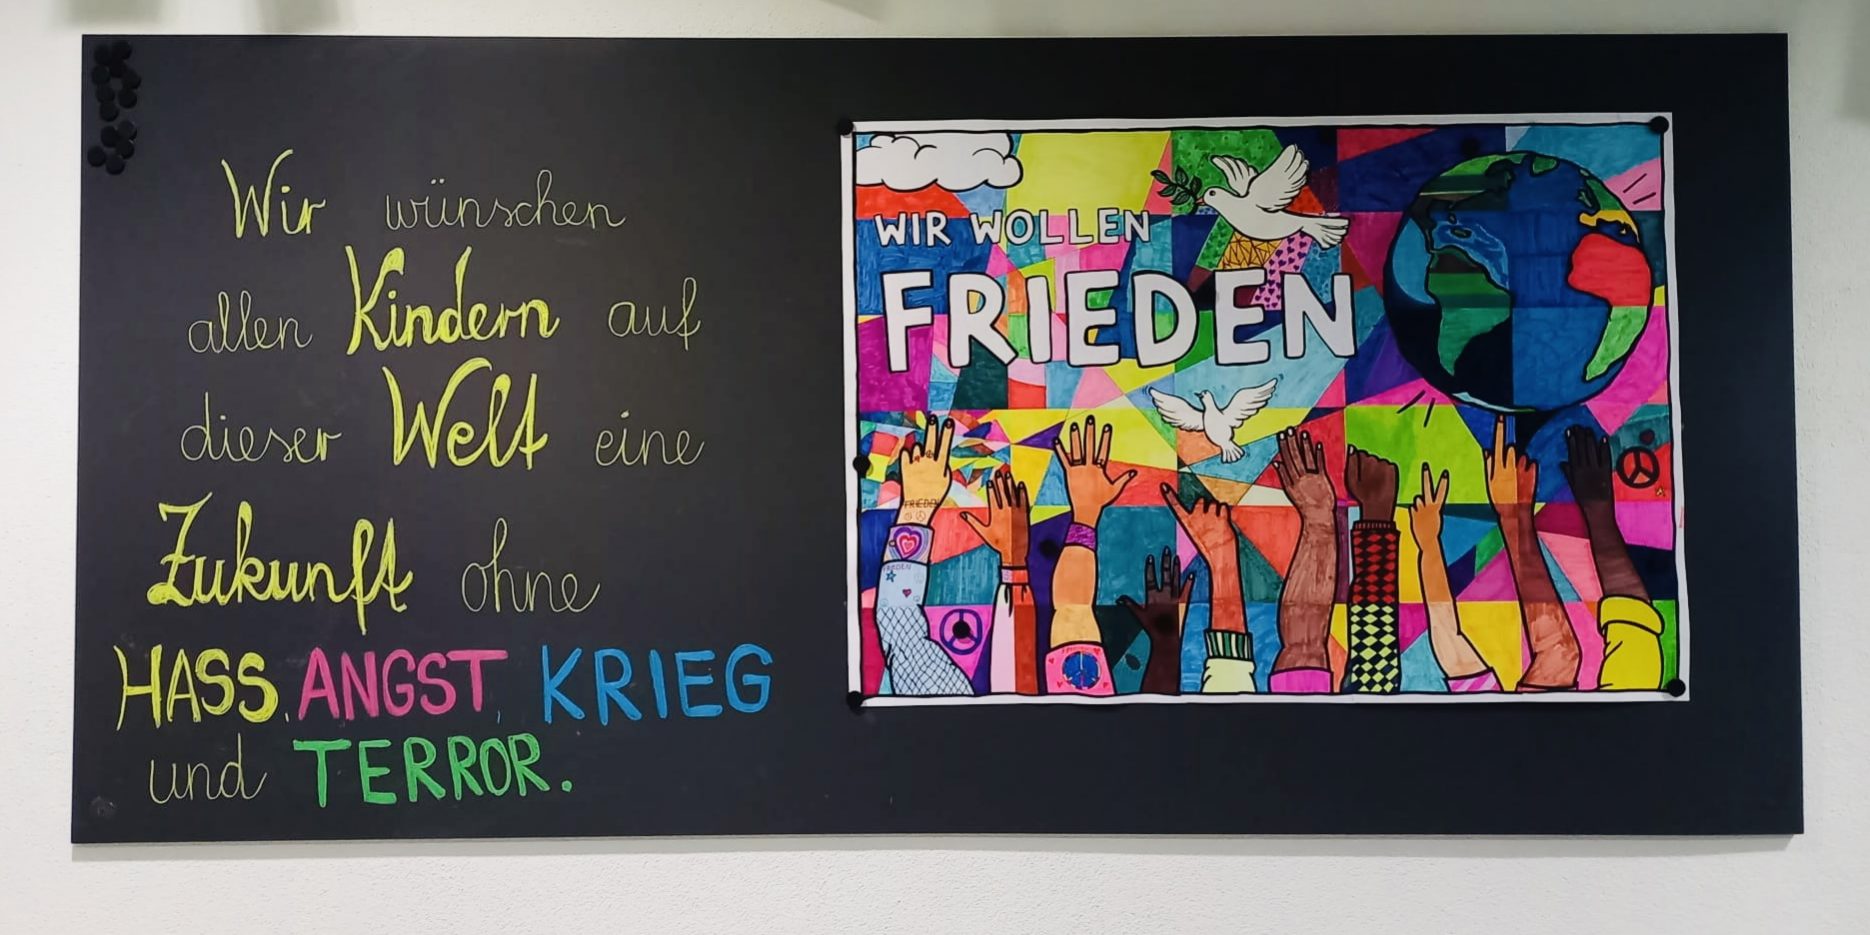 Wir wünschen
allen Kindern auf
dieser Welt eine
Zukunft ohne
HASS, ANGST, KRIEG
und TERROR.
WIR WOLLEN
FRIEDEN
FRIEDEN
FRIEDEN